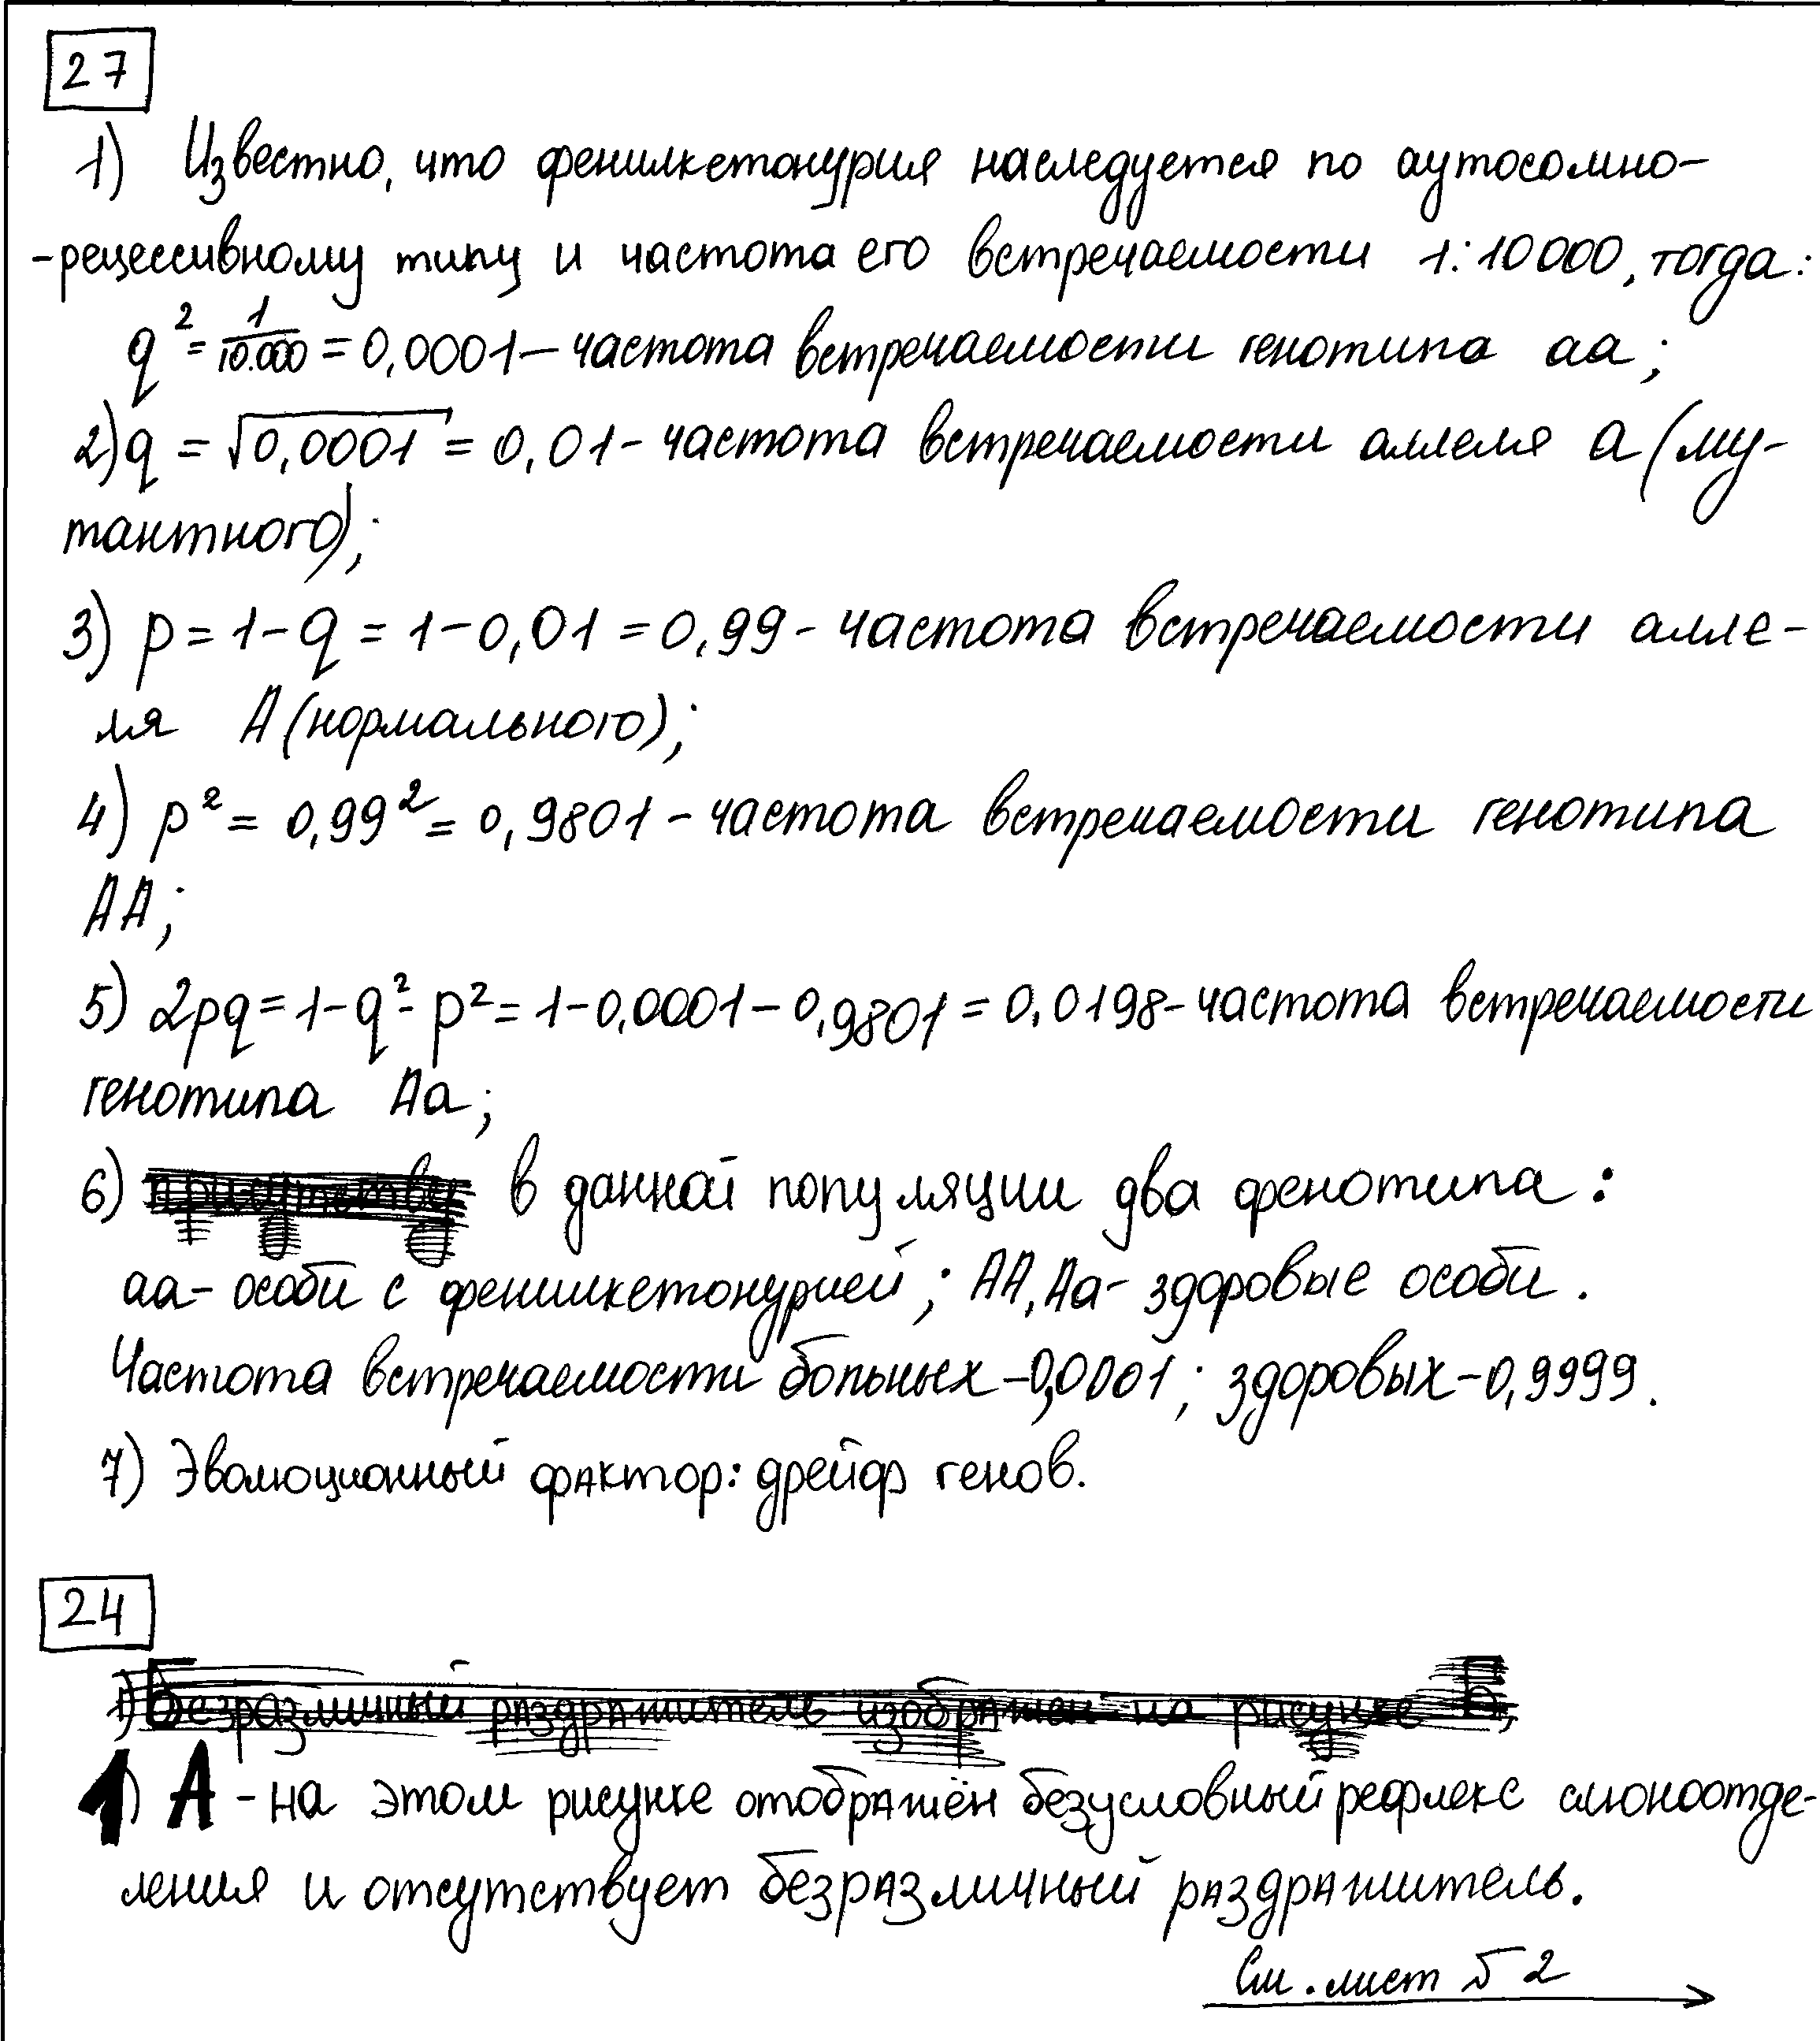 27
1) Известно, что фенилкетонурия наследуется по аутосомно-
-рецессивному типу и частота его встречаемости 1:10000, тогда:
q² = 1/10.000 = 0,0001 – частота встречаемости генотипа аа;
2) q = √0,0001 = 0,01 - частота встречаемости аллеля а (му-
тантного);
3) p = 1 - q = 1 - 0,01 = 0,99 - частота встречаемости алле-
ля А (нормального);
4) p² = 0,99² = 0,9801 - частота встречаемости генотипа
АА;
5) 2pq = 1 - q² - p² = 1 - 0,0001 - 0,9801 = 0,0198 - частота встречаемости
генотипа Аа;
6) в данной популяции два фенотипа:
аа - особи с фенилкетонурией; АА, Аа - здоровые особи.
Частота встречаемости больных - 0,0001; здоровых - 0,9999.
7) Эволюционный фактор: дрейф генов.
24
1) Безразличный раздражитель изображен на рисунке Б,
1) А - на этом рисунке отображён безусловный рефлекс слюноотде-
ления и отсутствует безразличный раздражитель.
См. лист 2